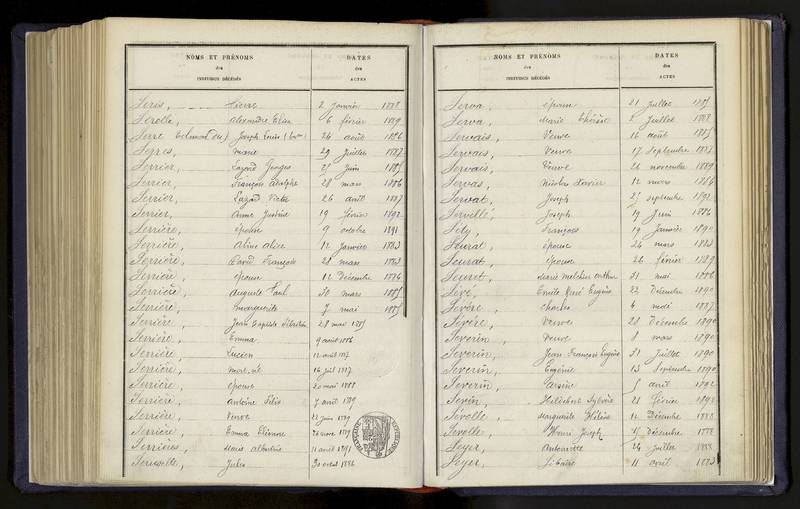 NOMS ET PRÉNOMS
des
INDIVIDUS DÉCÉDÉS
DATES
des
ACTES
Seris, Pierre 2 Janvier 1888
Serolle, alexandre Elisa 6 février 1889
Serre Joseph Louis 24 août 1886
Serres, Marie 29 Juillet 1887
Serrier, Lazard Georges 25 Juin 1885
Serrier, François Adolphe 28 mars 1886
Serrier, Lazard 26 août 1887
Serrier, Anne Justine 19 février 1892
Serrière, épouse 9 octobre 1891
Serrière, aline alice 12 Janvier 1883
Serrière, David François 21 mars 1883
Serrière, épouse 12 Décembre 1886
Serrière, Auguste Paul 30 mars 1885
Serrière, marguerite 7 mai 1885
Serrière, Jean Baptiste 28 mai 1885
Serrière, Emma 9 août 1886
Serrière, Lucien 12 août 1887
Serrière, mort né 16 Juil 1887
Serrière, épouse 20 mai 1888
Serrière, Antoine Félix 7 avril 1889
Serrière, Veuve 22 Juin 1889
Serrière, Emma 1889
Serrières, Marie 11 avril 1891
Jules 30 1886
NOMS ET PRÉNOMS
des
INDIVIDUS DÉCÉDÉS
DATES
des
ACTES
Serva, épouse 21 Juillet 1885
Serva, Marie Thérèse 2 Juillet 1888
Servais, Veuve 16 août 1885
Servais, Veuve 17 Septembre 1887
Servais, Veuve 26 novembre 1889
Servas, Nicolas Xavier 12 mars 1886
Servat, Joseph 25 septembre 1892
Servelle, Joseph 19 Juin 1886
Séty, François 19 Janvier 1890
Seurat, épouse 26 mars 1883
Seurat, épouse 26 février 1889
Seuret, Marie 31 mai 1886
Sève, Emile René Eugène 22 Décembre 1890
Sévère, charles 4 mai 1887
Sévère, veuve 28 Décembre 1890
Severin, veuve 8 mars 1890
Severin, Jean François Eugène 31 Juillet 1890
Severin, Eugénie 13 Septembre 1890
Severin, 5 avril 1892
Sevin, Sylvère 21 février 1890
Sevolle, Marguerite Hélène 14 Décembre 1888
Sevolle, Henri Joseph 25 Décembre 1888
Seyer, Antoinette 24 Juillet 1888
Seyer, 11 avril 1883